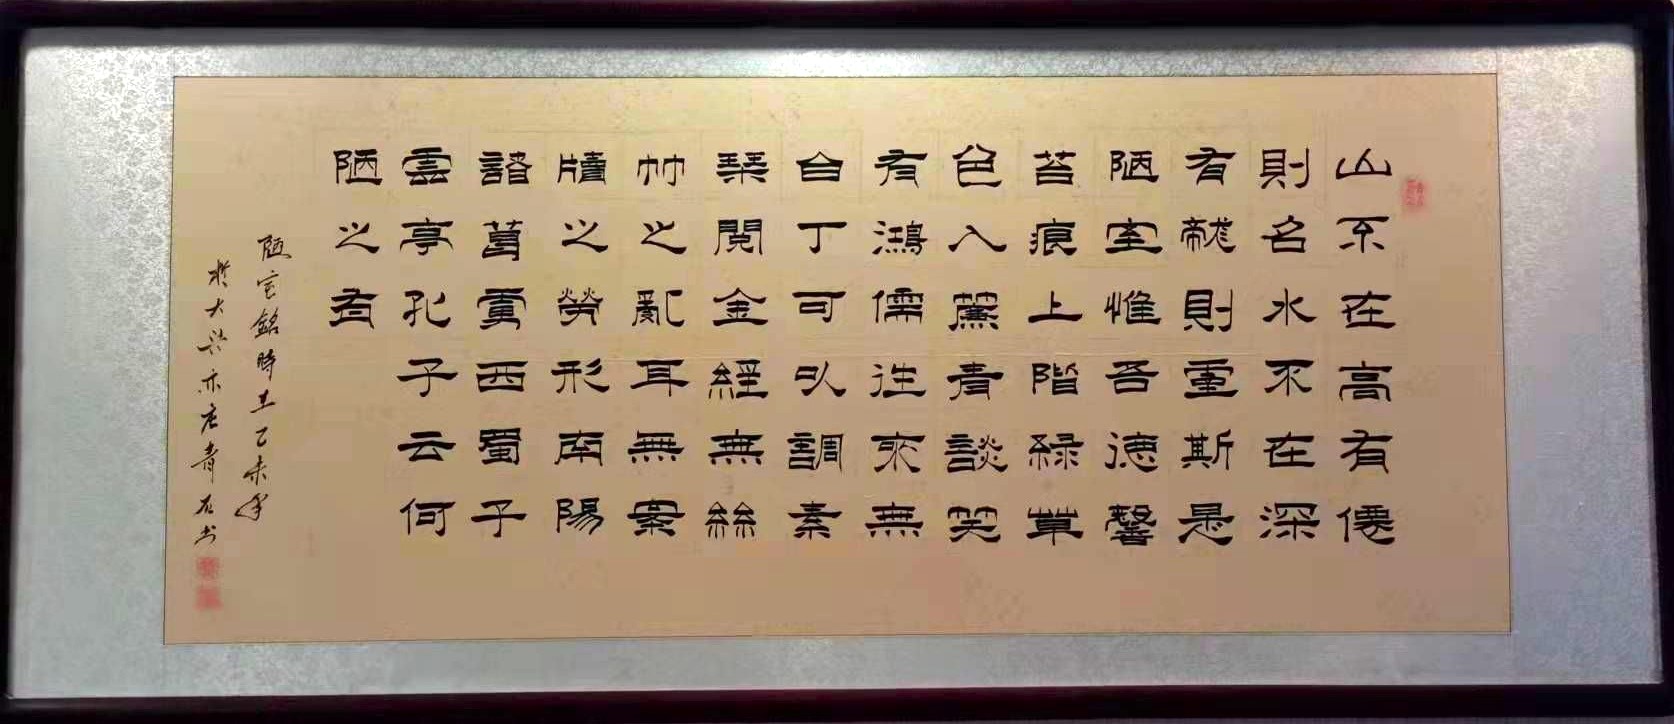 山不在高有僊
則名水不在深
有龍則靈斯是
陋室惟吾德馨
苔痕上階緑草
色入簾青談笑
有鴻儒往來無
白丁可以調素
琴閱金經無絲
竹之亂耳無案
牘之勞形南陽
諸葛廬西蜀子
雲亭孔子云何
陋之有
陋室銘時在乙未年
於大兴亦庄青石书